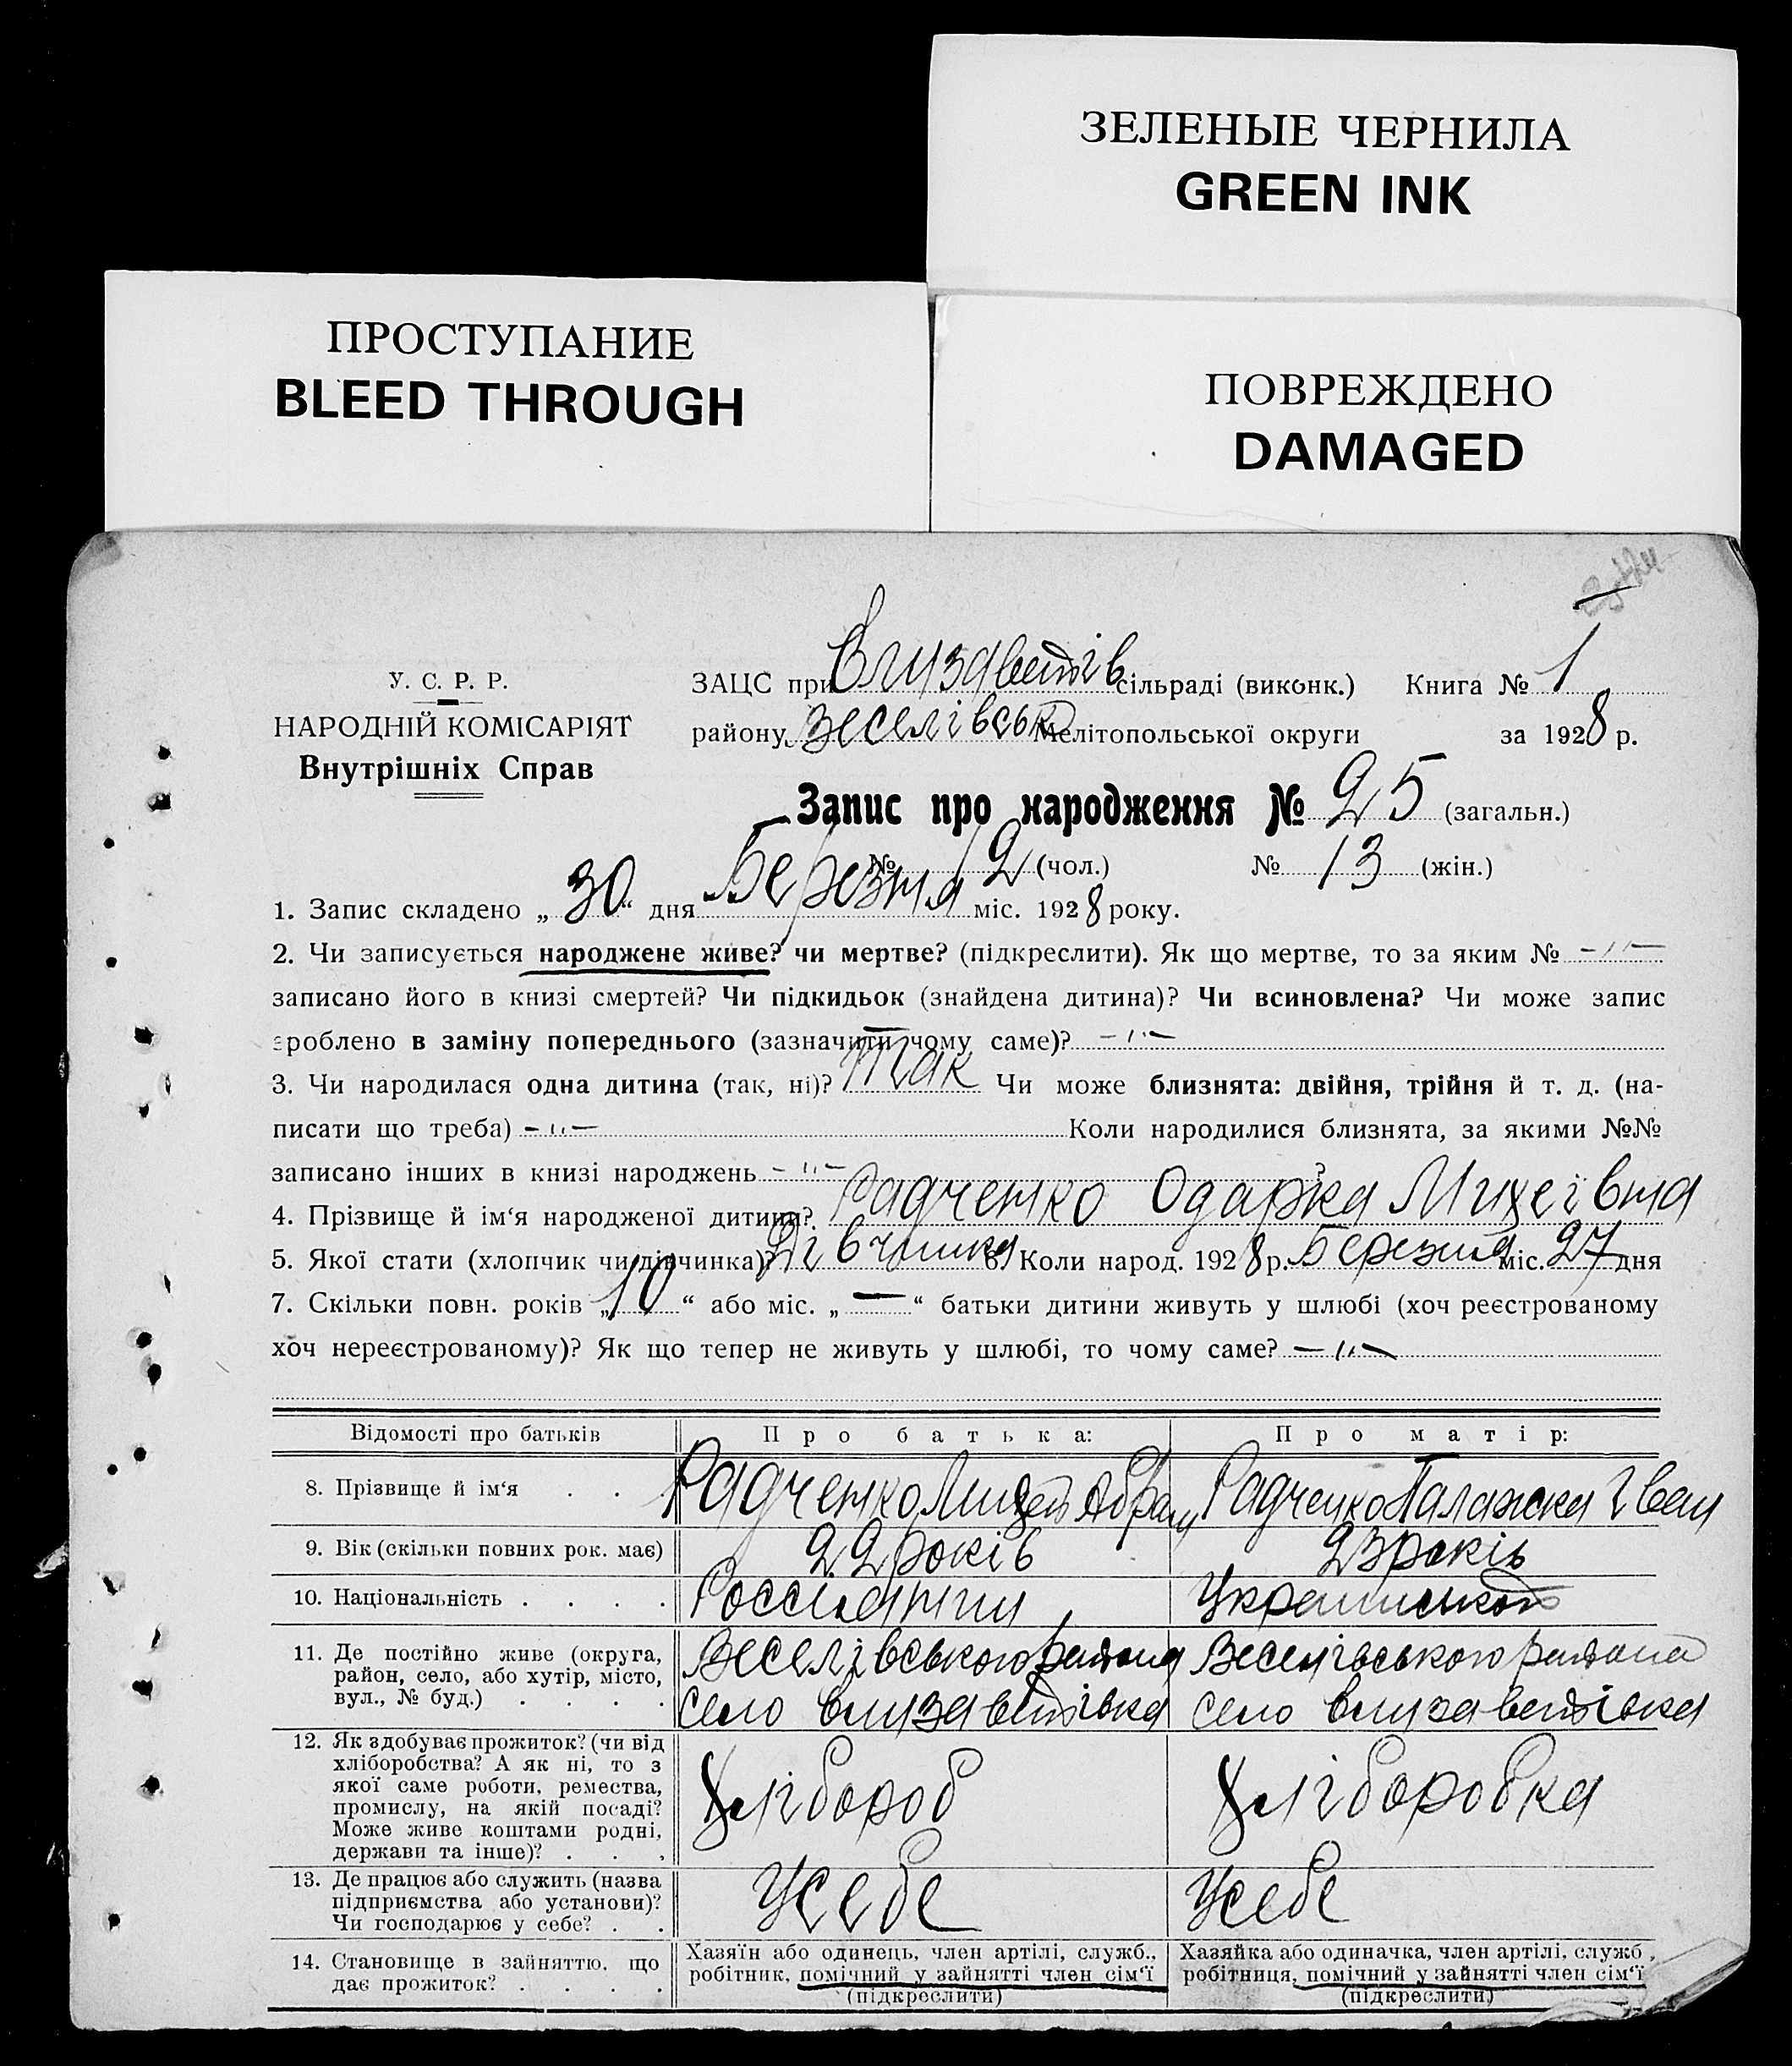 ЗЕЛЕНЫЕ ЧЕРНИЛА
GREEN INK
ПРОСТУПАНИЕ
BLEED THROUGH
ПОВРЕЖДЕНО
DAMAGED
У. С. Р. Р.
НАРОДНІЙ КОМІСАРІЯТ
Внутрішніх Справ
ЗАЦС при Єлизаветів сільраді (виконк.) Книга № 1
району Веселівськ Мелітопольської округи за 1928 р.
Запис про народження № 25 (загальн.)
№ 12 (чол.) № 13 (жін.)
1. Запис складено „ 30 “ дня Березня міс. 1928 року.
2. Чи записується народжене живе? чи мертве? (підкреслити). Як що мертве, то за яким № -"-
записано його в книзі смертей? Чи підкидьок (знайдена дитина)? Чи всиновлена? Чи може запис
зроблено в заміну попереднього (зазначити чому саме)? -"-
3. Чи народилася одна дитина (так, ні)? Так Чи може близнята: двійня, трійня й т. д. (на-
писати що треба) -"- Коли народилися близнята, за якими №№
записано інших в книзі народжень -"- ?
4. Прізвище й ім‘я народженої дитини? Радченко Одарка Михеівна
5. Якої стати (хлопчик чи дівчинка)? Дівчинка 6. Коли народ. 1928 р. Березня міс. 27 дня
7. Скільки повн. років „ 10 “ або міс. „ — “ батьки дитини живуть у шлюбі (хоч реєстрованому
хоч нереєстрованому)? Як що тепер не живуть у шлюбі, то чому саме? -"-
Відомості про батьків Про батька: Про матір:
8. Прізвище й ім‘я . . . Радченко Михей Абрам Радченко Палажка Іван
9. Вік (скільки повних рок. має) 22 років 23 років
10. Національність . . . . Россиянин Украинськой
11. Де постійно живе (округа,
район, село, або хутір, місто,
вул., № буд.) . . . .
Веселівського района
село Єлизаветівка
Веселівського района
село Єлизаветівка
12. Як здобуває прожиток? (чи від
хліборобства? А як ні, то з
якої саме роботи, ремества,
промислу, на якій посаді?
Може живе коштами родні,
держави та інше)? . . .
Хлібороб
Хліборобка
13. Де працює або служить (назва
підприємства або установи)?
Чи господарює у себе? . .
Усебе
Усебе
14. Становище в зайняттю, що
дає прожиток? . . . .
Хазяїн або одинець, член артілі, служб.,
робітник, помічний у зайнятті член сім‘ї
(підкреслити)
Хазяйка або одиначка, член артілі, служб.,
робітниця, помічний у зайнятті член сім‘ї
(підкреслити)